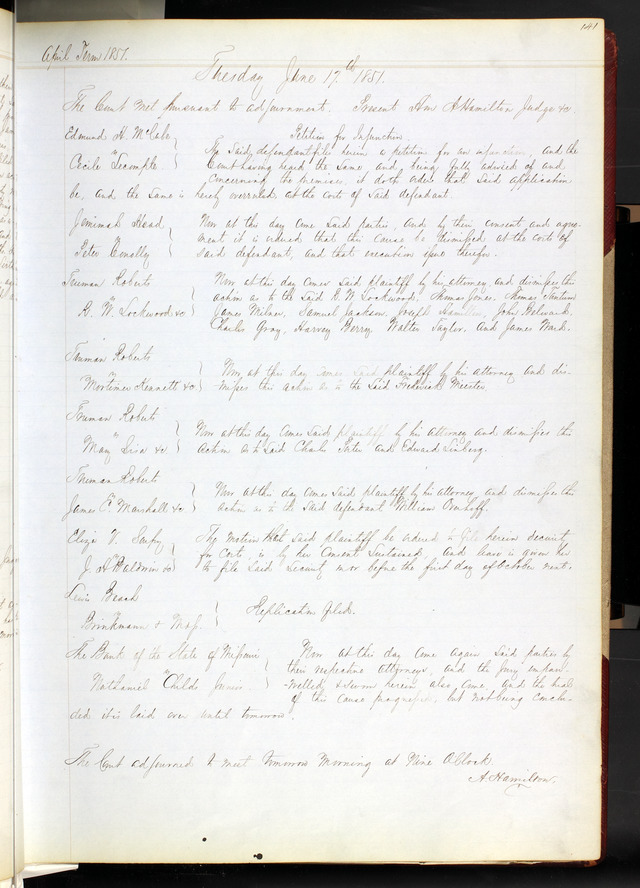 141
April Term 1851.
Tuesday June 17th 1851.
The Court met pursuant to adjournment. Present A Hamilton Judge &c
Edmund H McCabe
vs
Cecile Lecomple
Petition for Injunction
The Said defendant files herein a petition for an injunction, and the
Court having heard the Same and being fully advised of and
concerning the premises, it doth order that Said application
be, and the Same is hereby overruled at the costs of Said defendant.
Jemimah Head
vs
Peter Conolly
Now at this day come Said parties, and by their consent and agree-
ment it is ordered that this cause be dismissed at the costs of
said defendant, and that execution issue therefor.
Truman Roberts
vs
R. W. Lockwood &c
Now at this day comes Said plaintiff by his attorney and dismisses this
action as to the Said R. W. Lockwood, Thomas Jones, Thomas
James Milner, Samuel Jackson, Joseph Hamilton, John
Charles Gray, Harvey Berry, Walter Taylor, and James Ward.
Truman Roberts
vs
Mortimer Kennett &c
Now at this day comes Said plaintiff by his attorney and dis-
misses this action as to the Said Frederick Meister
Truman Roberts
vs
Mary Lisa &c
Now at this day comes Said plaintiff by his attorney and dismisses this
action as to Said Charles and Edward
Truman Roberts
vs
James C Marshall &c
Now at this day comes Said plaintiff by his attorney and dismisses this
action as to the Said defendant William
Eliza V.
vs
J. A Baldwin &c
The motion that Said plaintiff be ordered to file herein Security
for Costs, is by her Consent Sustained, and leave is given her
to file Said Security on or before the first day of October next.
Beach
vs
Brinkmann &
Replication filed.
The Bank of the State of Missouri
vs
Nathaniel Childs Junior
Now at this day come again Said parties by
their respective attorneys, and the Jury empan-
nelled & Sworn herein also come, and the trial
of this cause progresses, but not being conclu-
ded it is laid over until tomorrow.
The Court adjourned to meet tomorrow Morning at Nine OClock.
A. Hamilton.